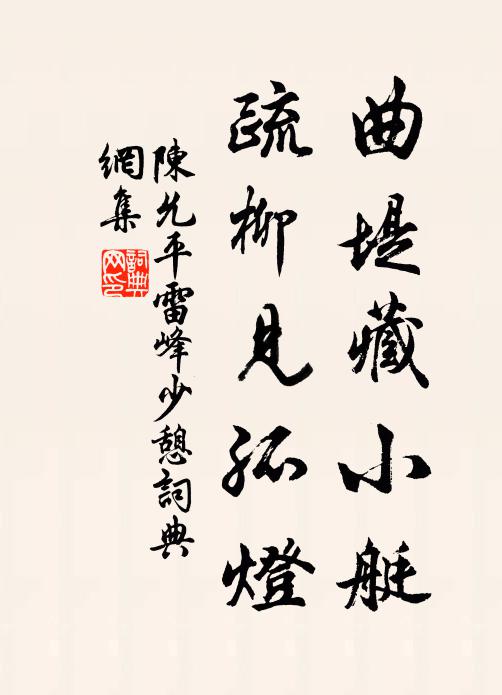 曲堤藏小艇
疏柳見孤燈
陳允平雷峰少憩詞典
網集
詞典网印